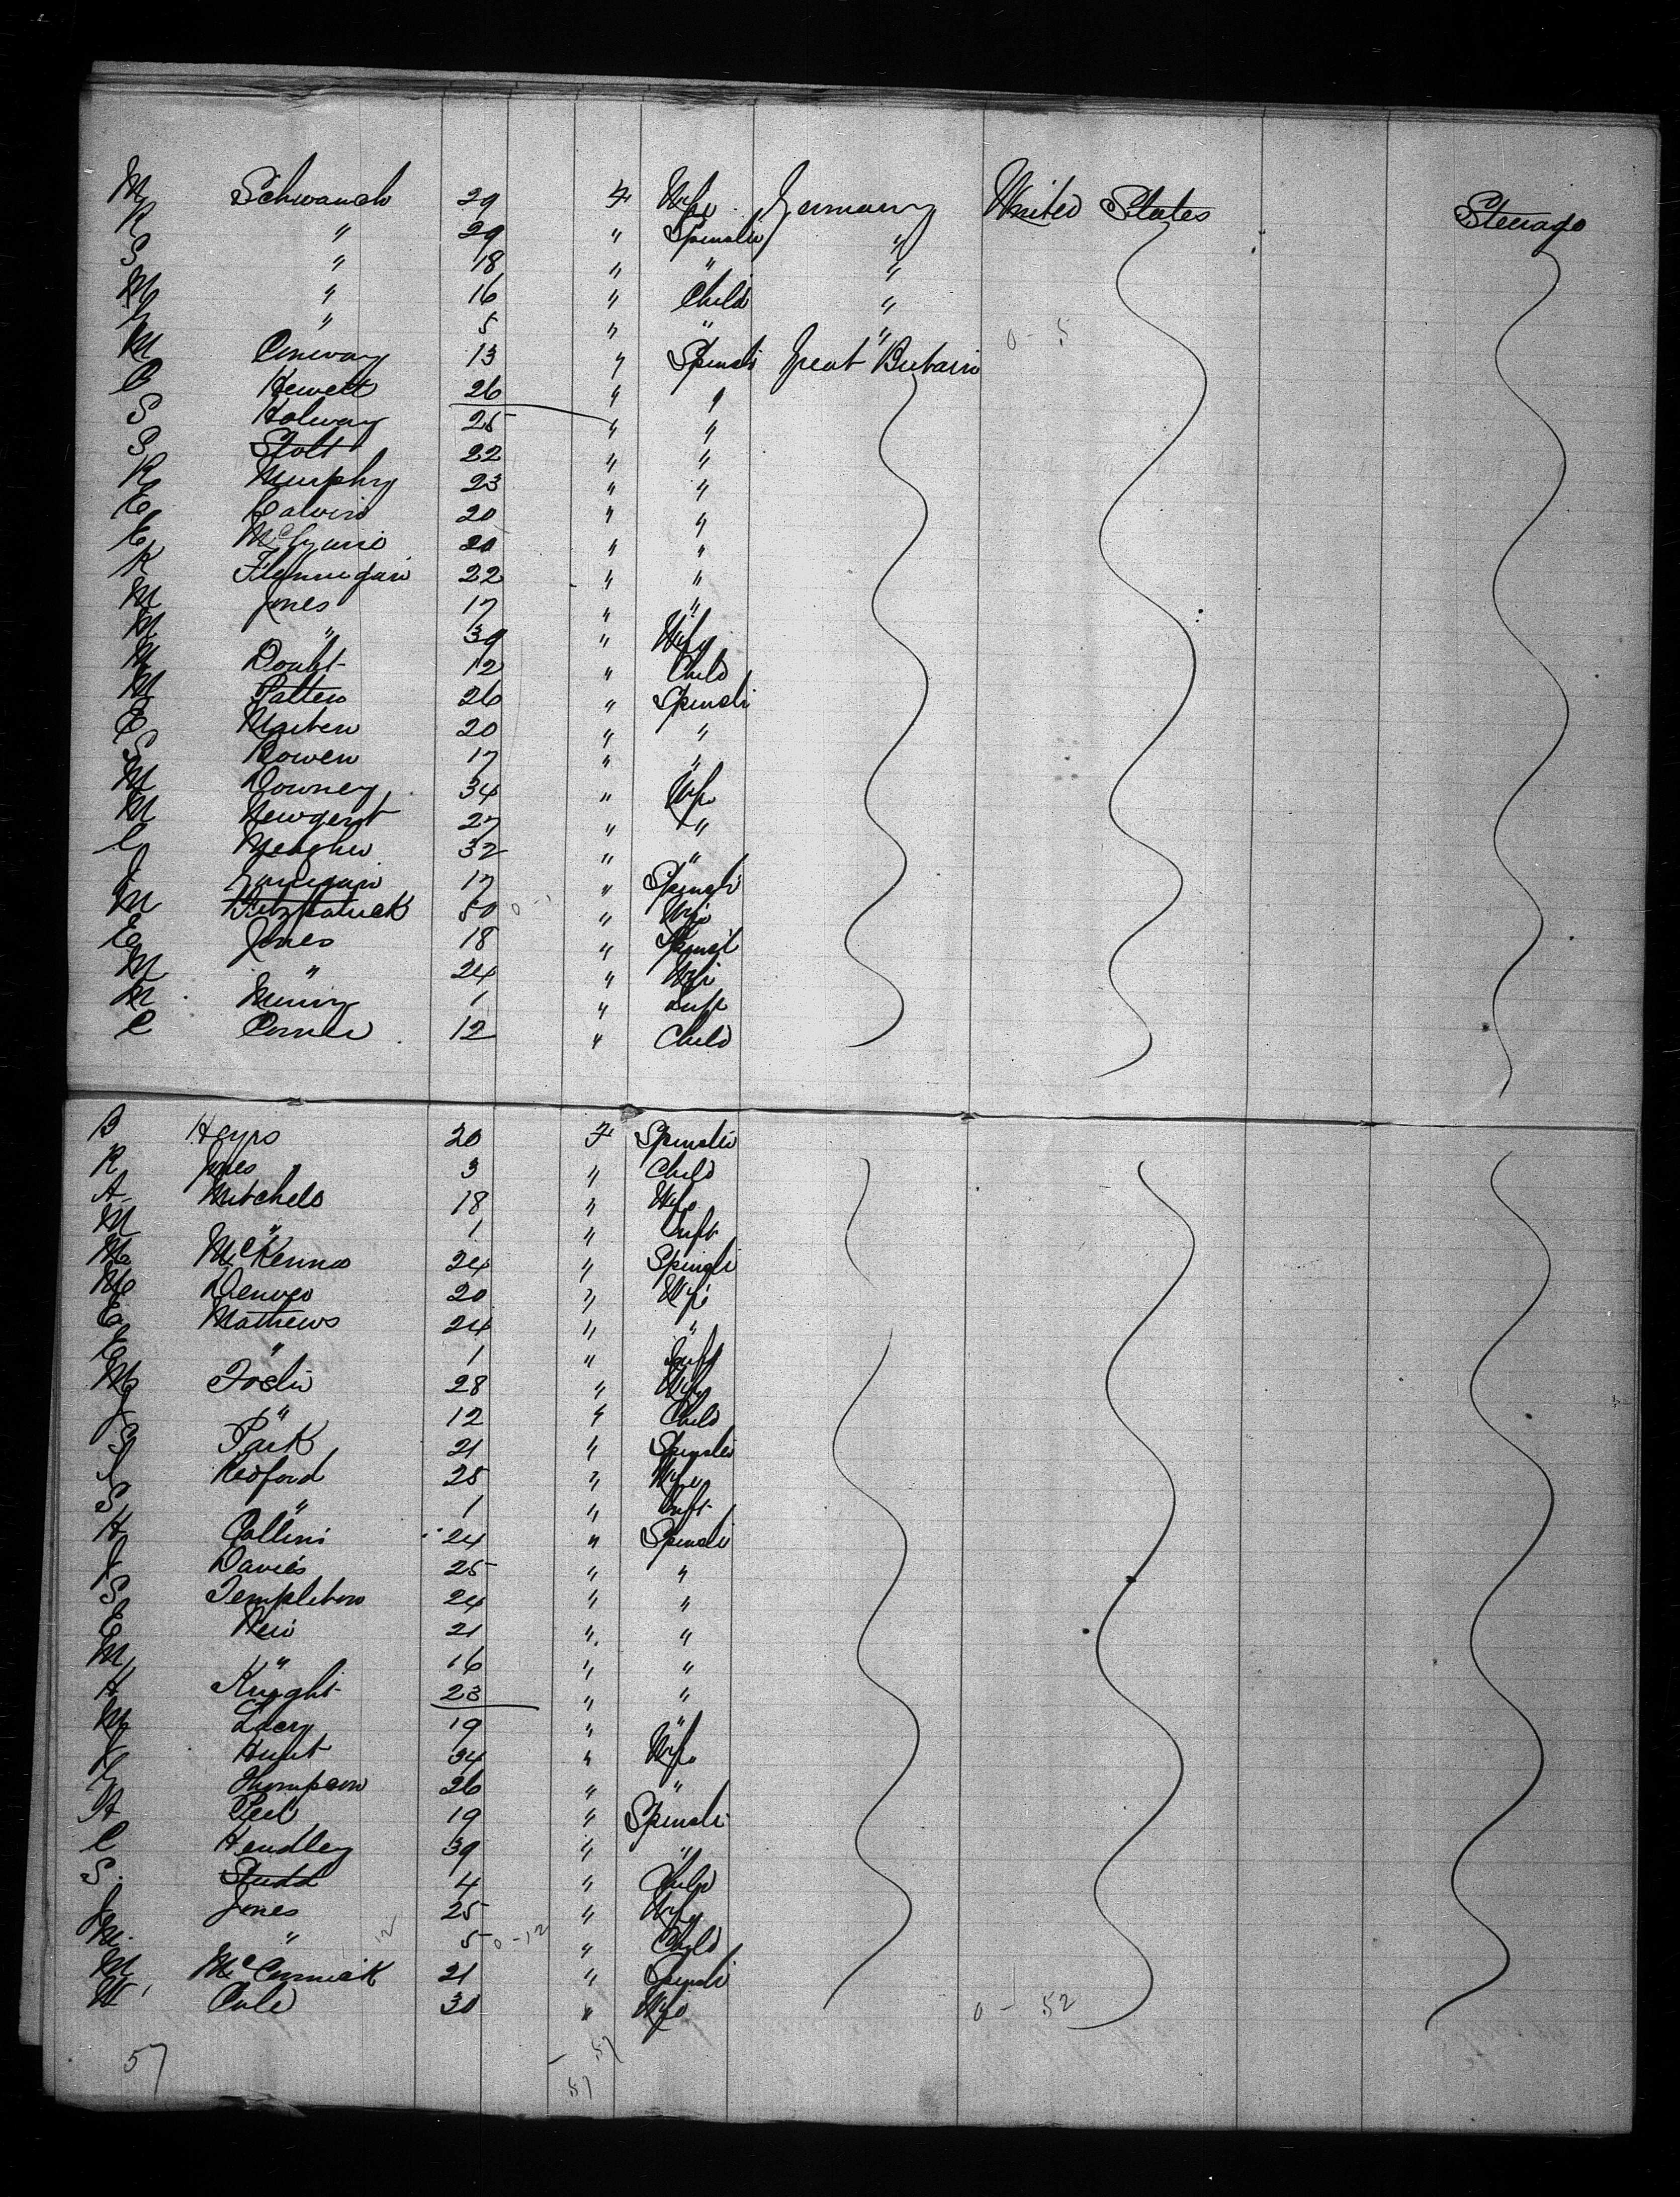 M Schwanch 29 F Wife Germany United States Steerage
R " 29 " Spinster "
S " 18 " " "
M " 16 " Child "
" 5 " " " 0 - 5
M Conway 13 " Spinstr Great Britain
C Hewett 26 " "
S Holway 25 " "
S Stott 22 " "
R Murphy 23 " "
E Calvin 20 " "
20 " "
K Flannigan 22 " "
M Jones 17 " "
M " 39 " Wife
M Doubt 12 " Child
M Patten 26 " Spinstr
E 20 " "
S Bowen 17 " "
M Downey 34 " Wife
M Newgent 27 " "
C Meagher 32 " "
J 17 " Spinstr
M Fitzpatrick 50 0 - " Wife
E Jones 18 " Spinst
M " 24 " Wife
M 1 " Inft
C Corner 12 " Child
B Heyes 20 F Spinster
R Jones 3 " Child
A Mitchell 18 " Wife
M " 1 " Inft
M McKenna 24 " Spinstr
M 20 " Wife
E Mathews 24 " "
E " 1 " Inft
M 28 " Wife
J " 12 " Child
S Park 21 " Spinster
J Redford 25 " Wife
S " 1 " Inft
H Collins 24 " Spinstr
J Davies 25 " "
S Templeton 24 " "
E 21 " "
M " 16 " "
H Knight 23 " "
M Lacey 19 " "
Hunt 34 " Wife
Thompson 26 " "
A Peel 19 " Spinstr
C Hendley 39 " "
S. Studd 4 " Child
J Jones 25 " Wife
M. " 12 5 0 - 12 " Child
M McCormick 21 " Spinstr
W Cole 30 " Wife 0 - 52
57 57
57